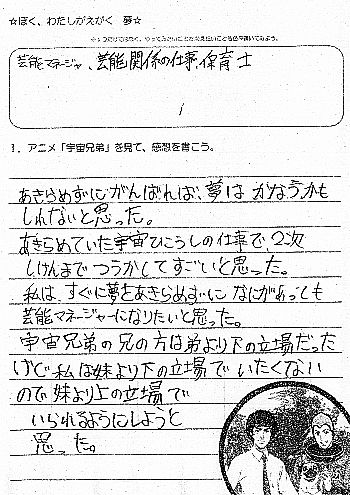 ☆ぼく、わたしがえがく 夢☆
芸能マネージャ、芸能関係の仕事、保育士
1. アニメ「宇宙兄弟」を見て、感想を書こう。
あきらめずにがんばれば、夢は かなうかも
しれないと思った。
あきらめていた宇宙ひこうしの仕事で、2次
しけんまで つうかしてすごいと思った。
私は、すぐに夢をあきらめずに なにがあっても
芸能マネージャーになりたいと思った。
宇宙兄弟の兄の方は弟より下の立場だった
けど 私は妹より下の立場で いたくない
ので 妹より上の立場で
いられるようにしようと
思った。